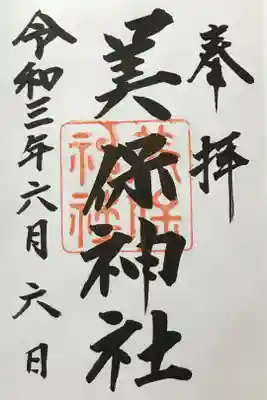 奉拝
美保神社
令和三年六月六日
美保神社